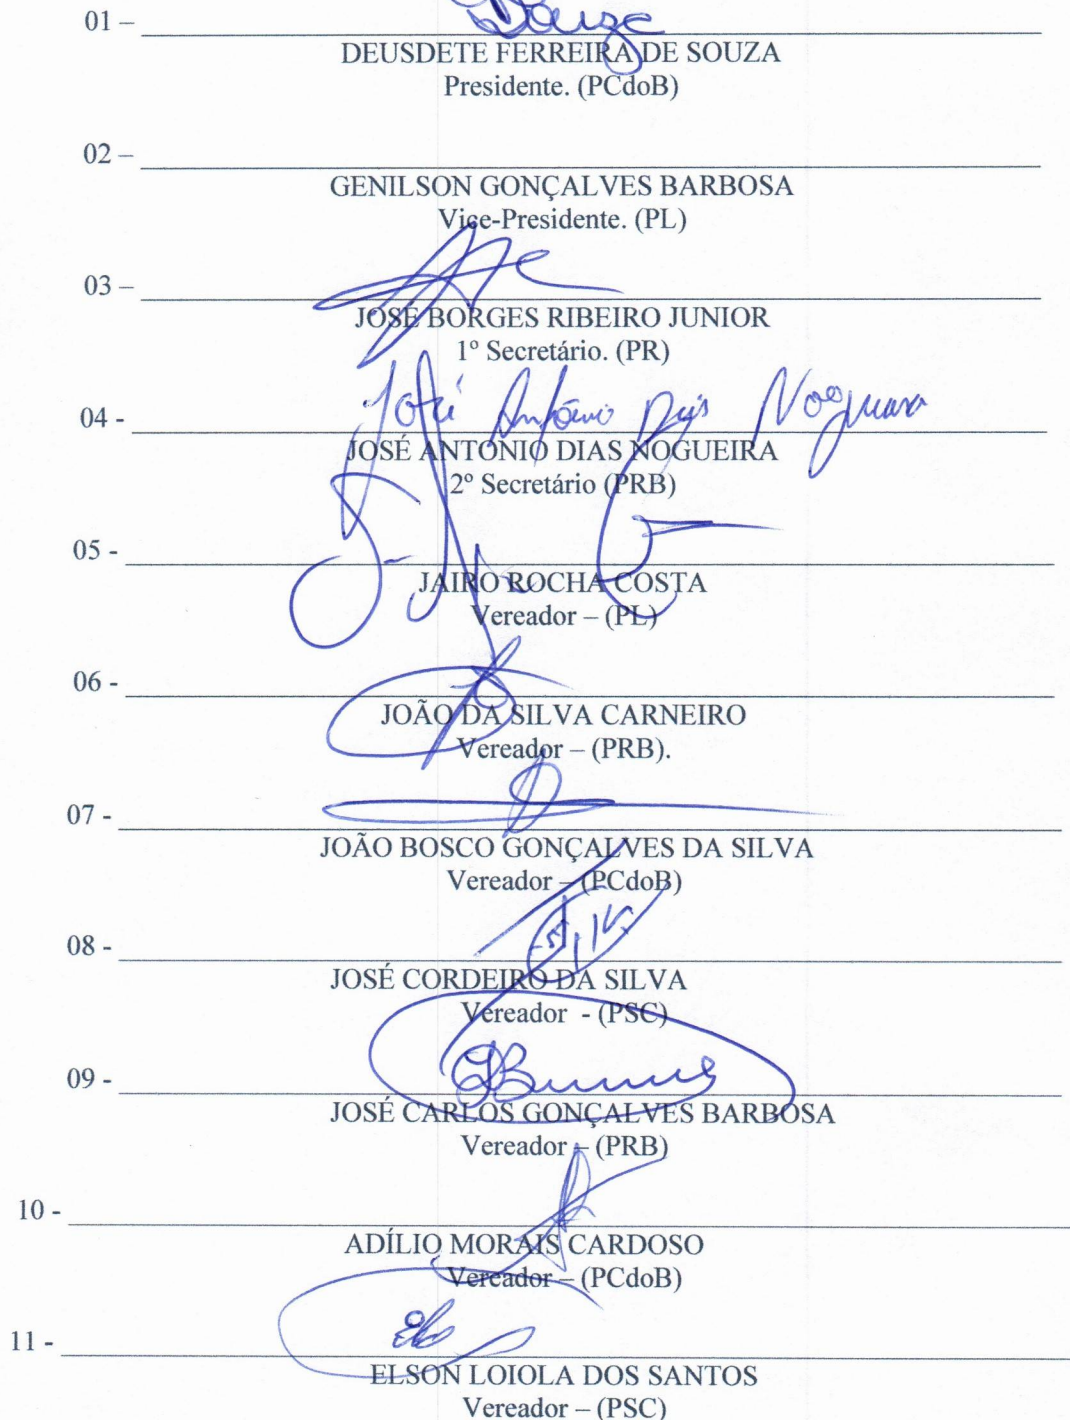 01 –
DEUSDETE FERREIRA DE SOUZA
Presidente. (PCdoB)
02 –
GENILSON GONÇALVES BARBOSA
Vice-Presidente. (PL)
03 –
JOSÉ BORGES RIBEIRO JUNIOR
1º Secretário. (PR)
José Antônio Dias Nogueira
04 -
JOSÉ ANTÔNIO DIAS NOGUEIRA
2º Secretário (PRB)
05 -
JAIRO ROCHA COSTA
Vereador – (PL)
06 -
JOÃO DA SILVA CARNEIRO
Vereador – (PRB).
07 -
JOÃO BOSCO GONÇALVES DA SILVA
Vereador – (PCdoB)
08 -
JOSÉ CORDEIRO DA SILVA
Vereador - (PSC)
09 -
JOSÉ CARLOS GONÇALVES BARBOSA
Vereador – (PRB)
10 -
ADÍLIO MORAIS CARDOSO
Vereador – (PCdoB)
11 -
ELSON LOIOLA DOS SANTOS
Vereador – (PSC)